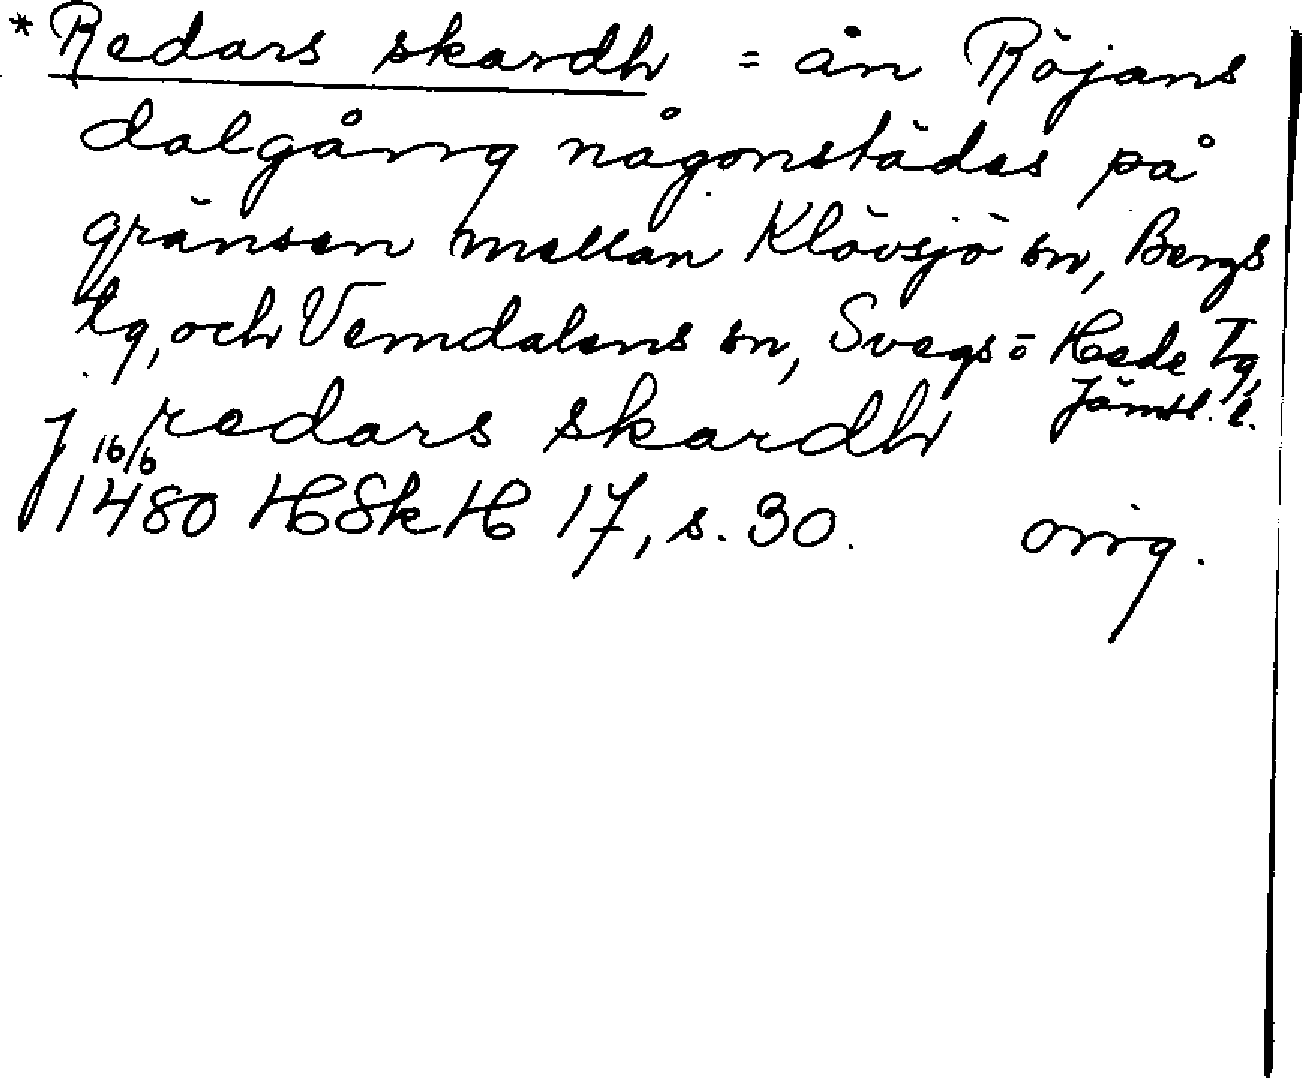 *Redars skardh = ån Röjans
dalgång någonstädes på
gränsen mellan Klövsjö sn, Bergs
tg, och Vemdalens sn, Svegs o Hede tg,
Jämtl. l.
j redars skardh
16/6 1480 HSkH 17, s. 30. orig.